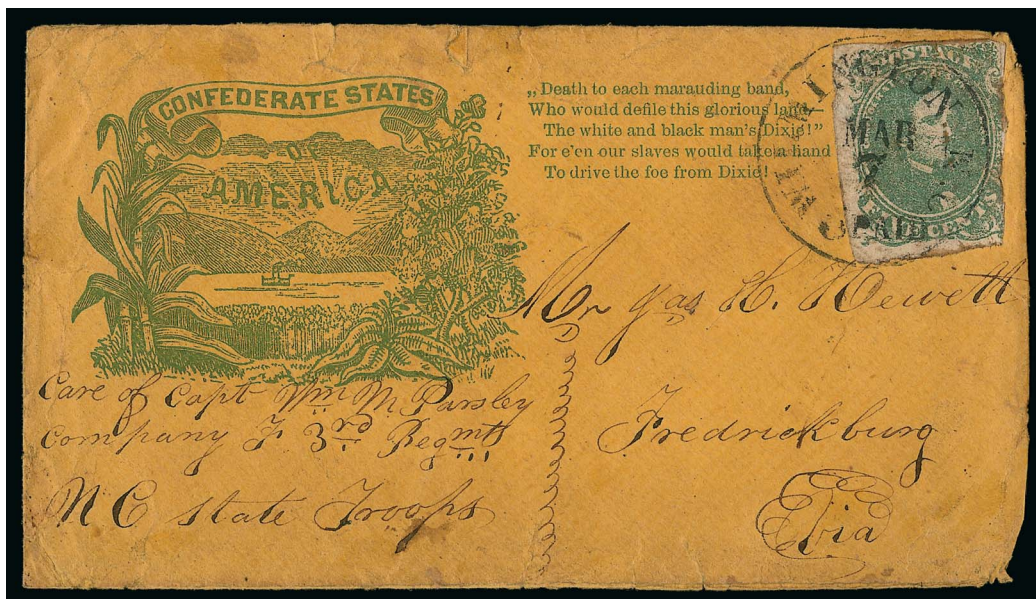 CONFEDERATE STATES
OF
AMERICA
„Death to each marauding band,
Who would defile this glorious land
The white and black man's Dixie!"
For e'en our slaves would take a hand
To drive the foe from Dixie!
POSTAGE
CENTS
WILMINGTON N.C.
MAR
PAID
Mr Jas H. Hewett
Care of Capt Wm M Parsley
Company F 3rd Regmt
N C State Troops
Fredrickburg